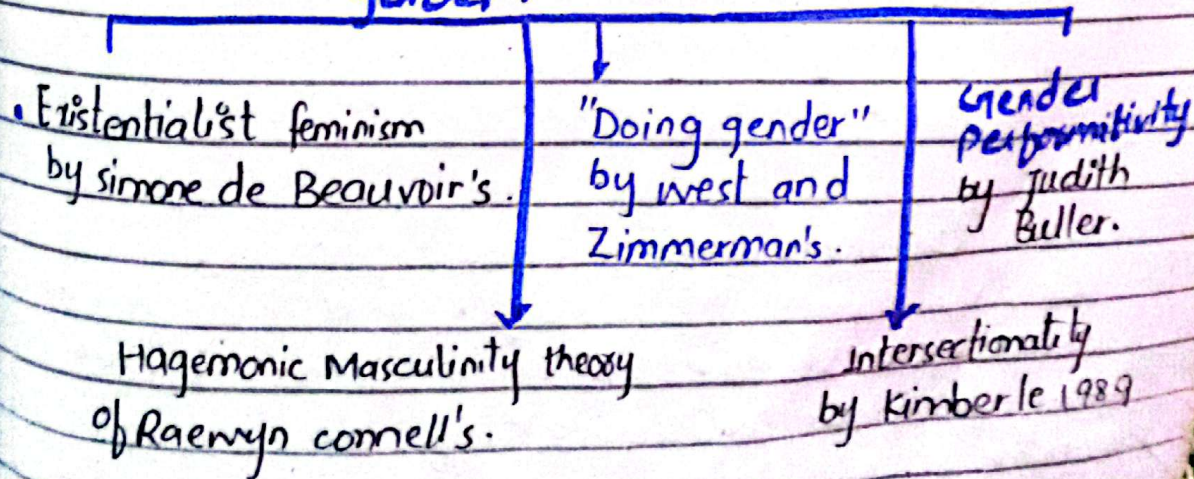 • Existentialist feminism
by simone de Beauvoir's.
"Doing gender"
by west and
Zimmerman's.
Gender
Performitivity
by Judith
Buller.
Hagemonic Masculinity theory
of Raewyn connell's.
Intersectionality
by Kimberle 1989